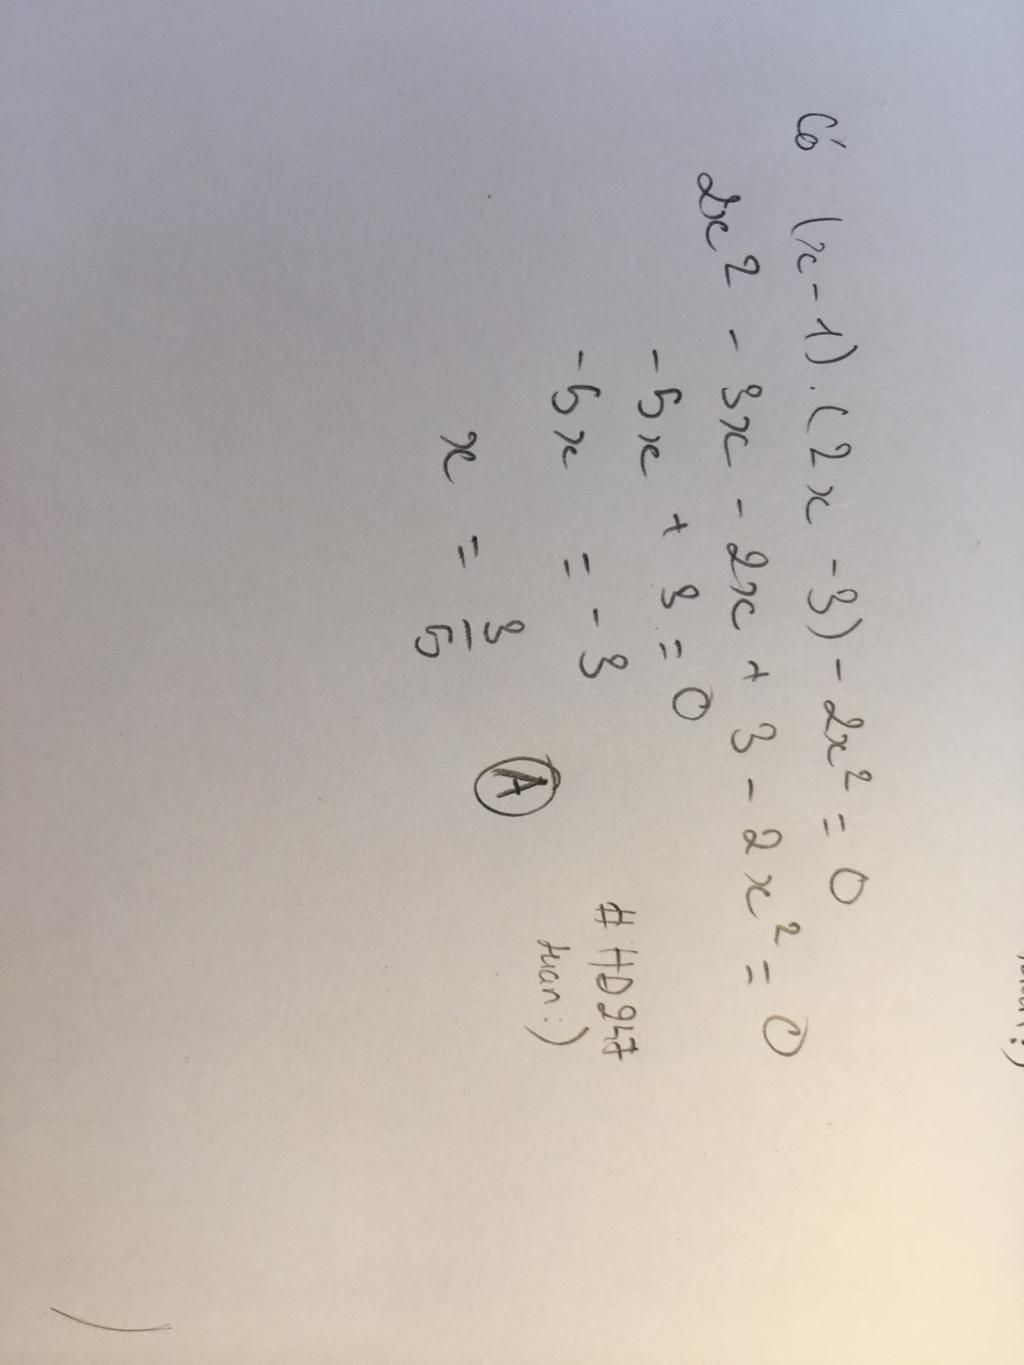 Có (x-1).(2x-3)-2x²=0
2x²-3x-2x+3-2x²=0
-5x+3=0
-5x=-3
x=3/5
A
#HD247
tuan:)